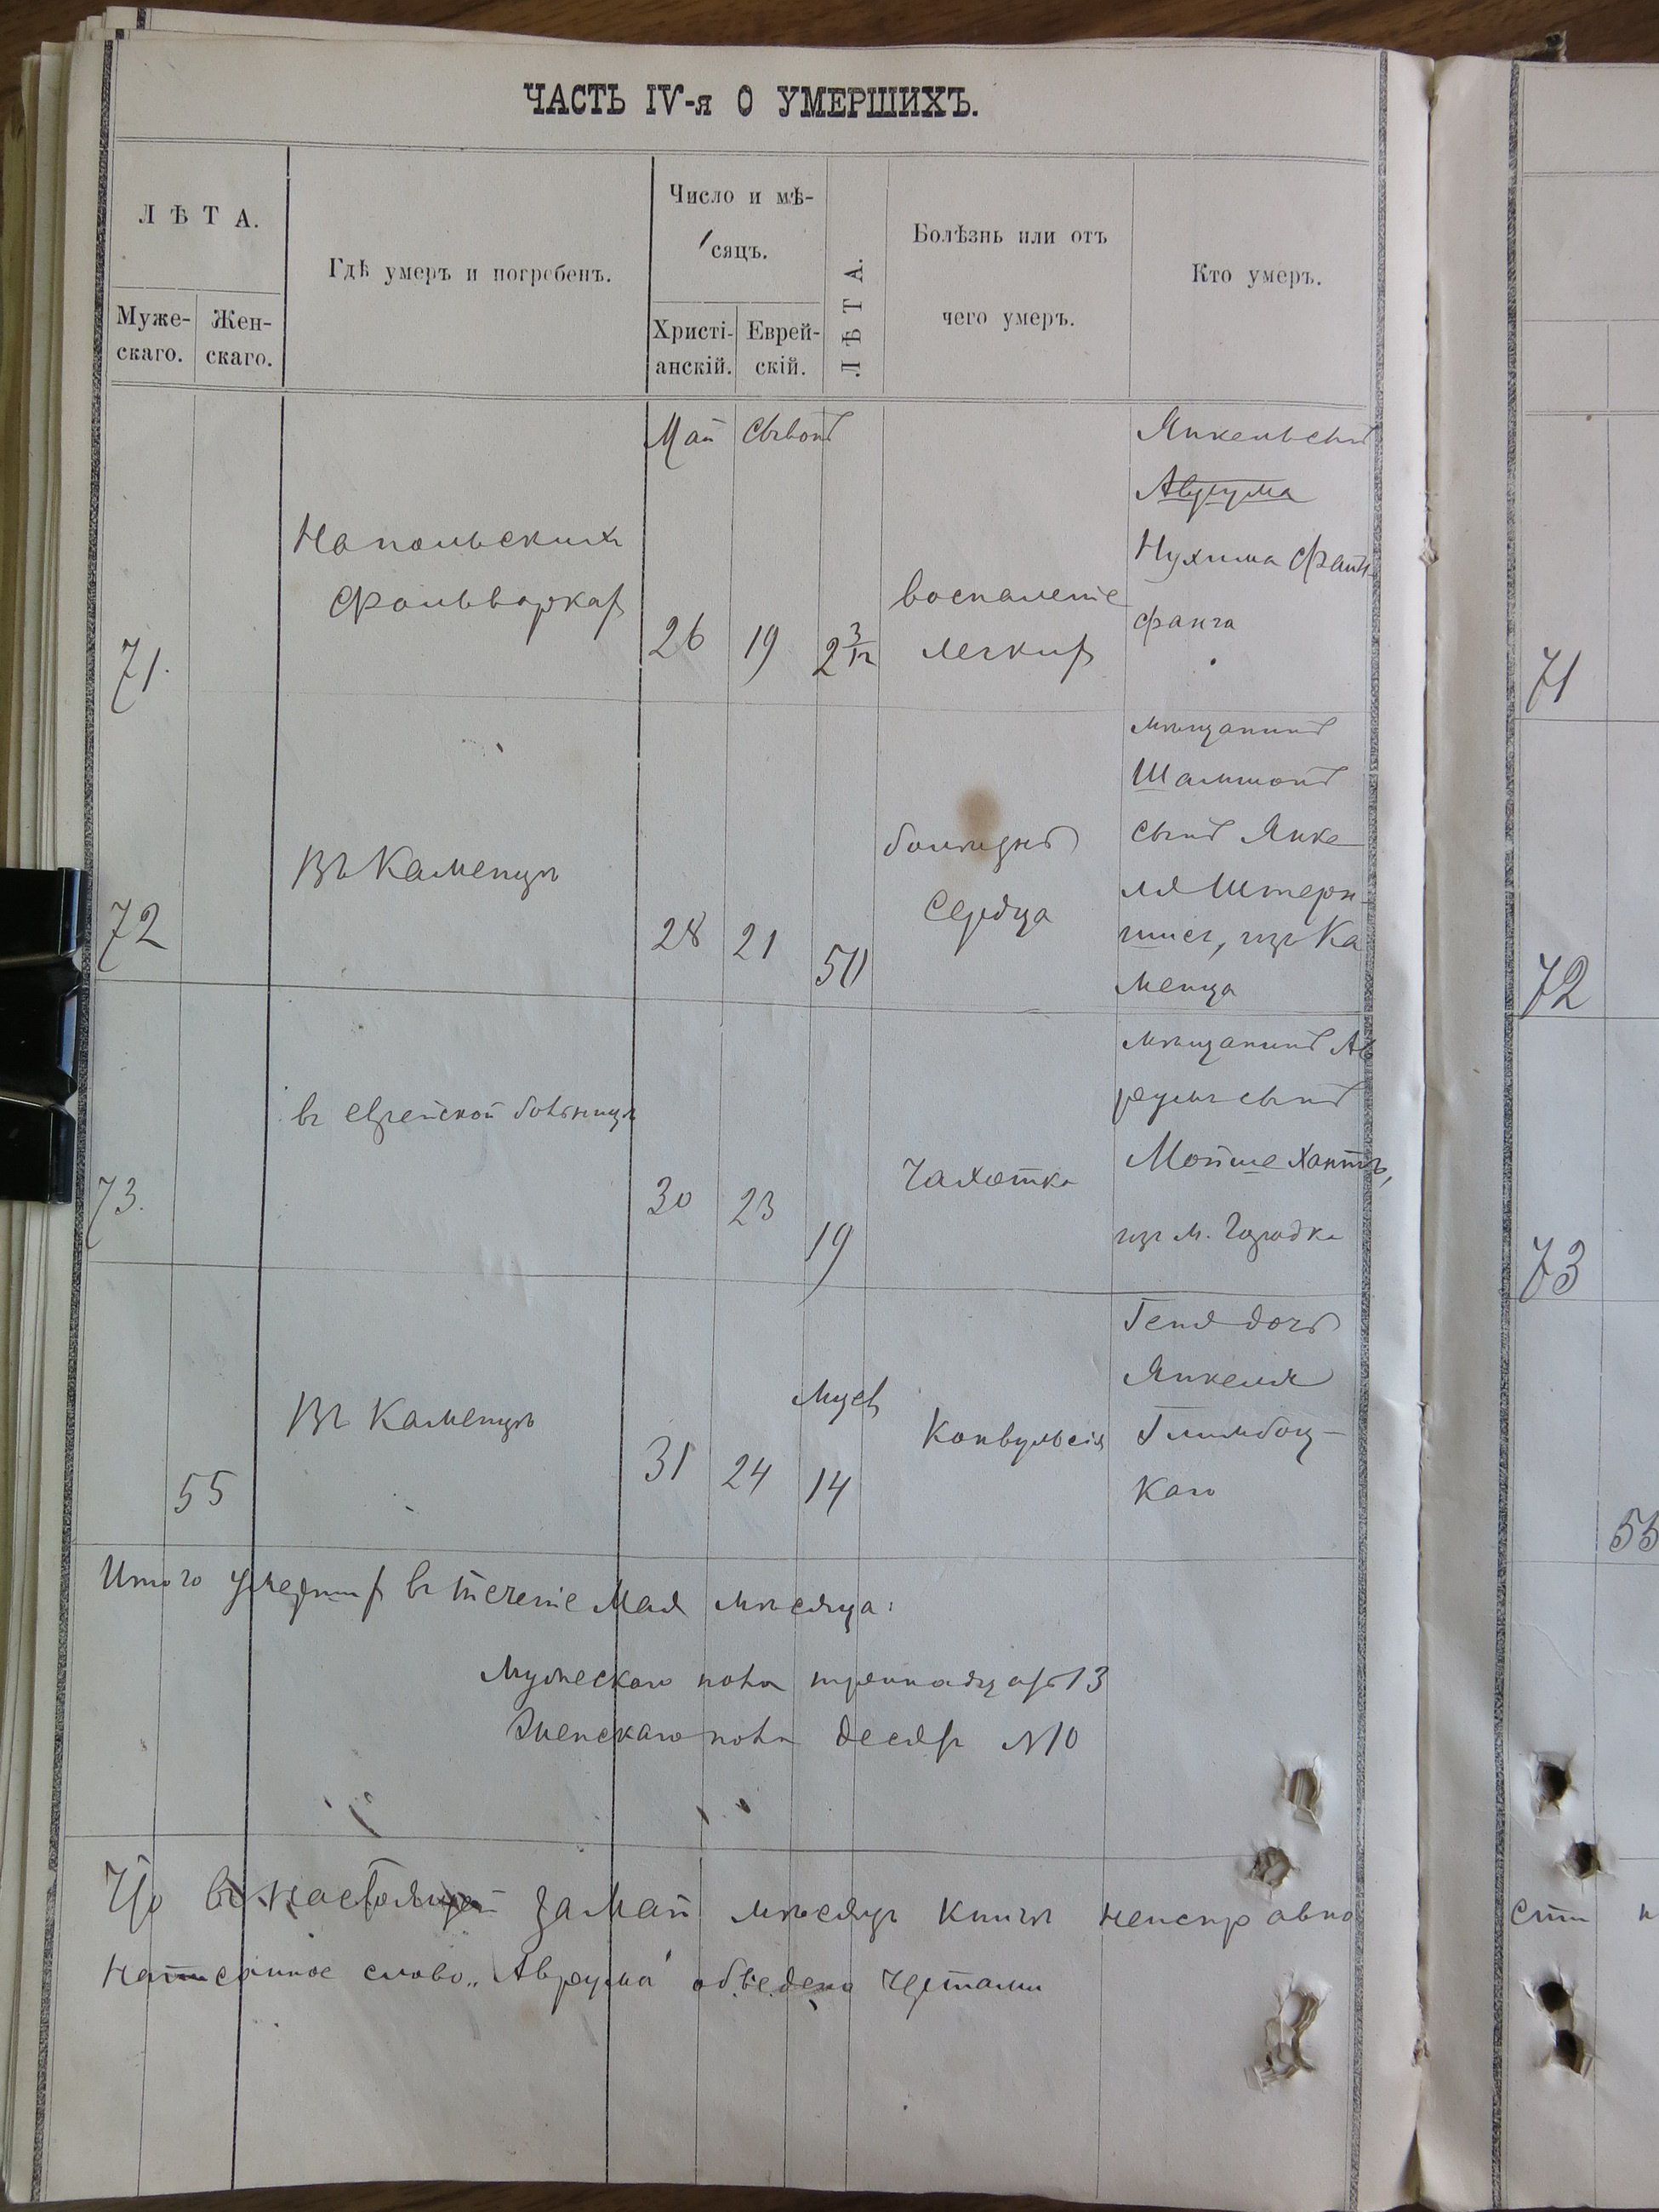 ЧАСТЬ IV-я О УМЕРШИХЪ.
ЛѢТА.
Муже-
скаго.
Жен-
скаго.
Гдѣ умеръ и погребенъ.
Число и мѣ-
сяцъ.
Христі-
анскій.
Еврей-
скій.
ЛѢТА.
Болѣзнь или отъ
чего умеръ.
Кто умеръ.
Май
71.
На польскихъ
фольваркахъ
26
19
2 3/12
воспаленіе
легкихъ
Янкель сынъ
Аврума
Нухима
72
Въ Каменцѣ
28
21
50
болѣзнь
сердца
мѣщанинъ
Шамшонъ
сынъ Янке
ля Штерн-
изъ Ка
менца
73.
въ еврейской больницѣ
30
23
19
Чахотка
мѣщанинъ Ав
румъ сынъ
Мойше
изъ м. Городка
55
Въ Каменцѣ
31
24
мѣсъ
14
Конвульсія
Геня дочь
Янкеля
каго
Итого умершихъ въ теченіе Мая мѣсяца:
Мужескаго пола тринадцать 13
Женскаго пола десять № 10
Что въ настоящей за Май мѣсяцъ книгѣ неисправно
написанное слово „Аврума" обведено чертами
71
72
73
55